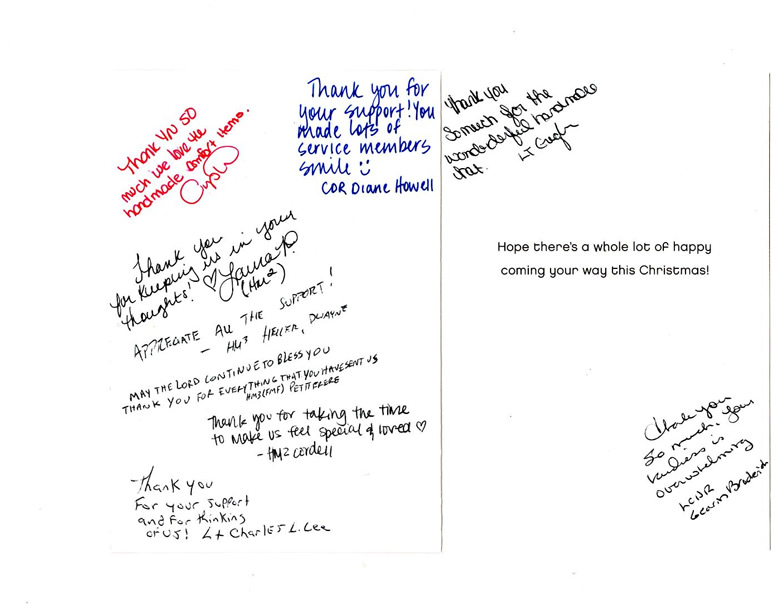 Thank YN SO
much we love the
handmade comfort items.
Thank you for
your support! You
made lots of
service members
smile
CDR Diane Howell
Thank you
for keeping us in your
thoughts! ♡ Laura
(HM2)
APPREGATE ALL THE SUPPORT!
- HM3 HELLER, DWAYNE
MAY THE LORD CONTINUE TO BLESS YOU
THANK YOU FOR EVERYTHING THAT YOU HAVE SENT US
HM3(FMF) PETITFRERE
Thank you for taking the time
to make us feel special & loved ♡
- HM2 Cordell
Thank you
For your support
and for thinking
of US! Lt Charles L. Lee
Thank you
So much for the
wonderful handmade
hat.
LT
Hope there's a whole lot of happy
coming your way this Christmas!
Thank you
So much, your
kindness is
overwhelming
LCDR